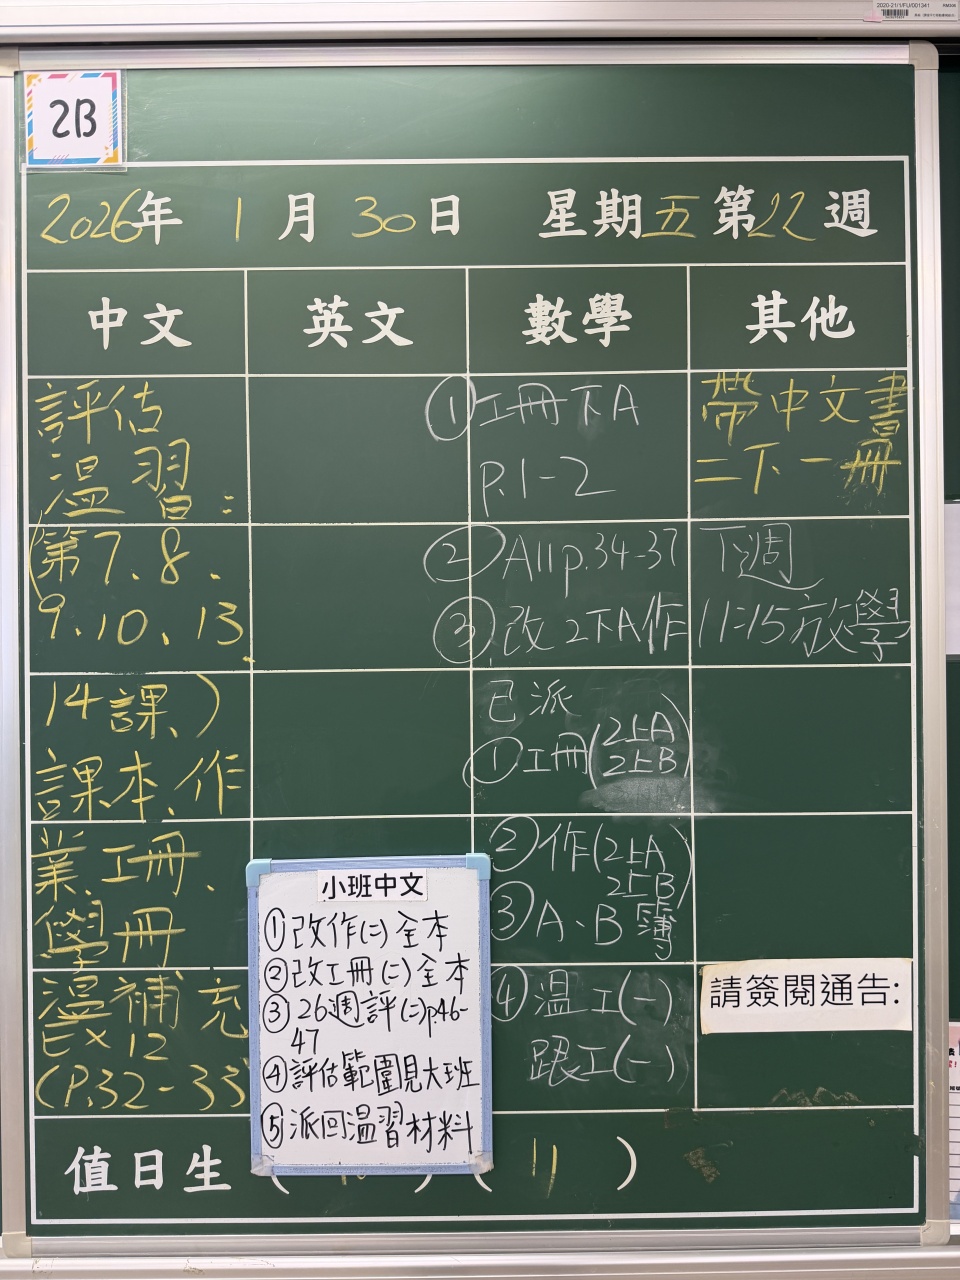 2020-21/1/FU/001341
2B
2026年 1月30日 星期五 第22週
中文 英文 數學 其他
評估
温習:
(第7、8、
9、10、13、
14課、)
課本、作
業、工冊、
學冊
温補充
Ex 12
(P.32-33)
①工冊下A
p.1-2
②A11p.34-37
③改2下A作
已派
①工冊(2上A
2上B)
②作(2上A
2上B)
③A、B簿
④温工(一)
跟工(一)
帶中文書
二下一冊
下週
11:15放學
請簽閱通告:
小班中文
①改作(二)全本
②改工冊(二)全本
③26週評(二)p.46-
47
④評估範圍見大班
⑤派回温習材料
值日生 ( ) ( 11 )